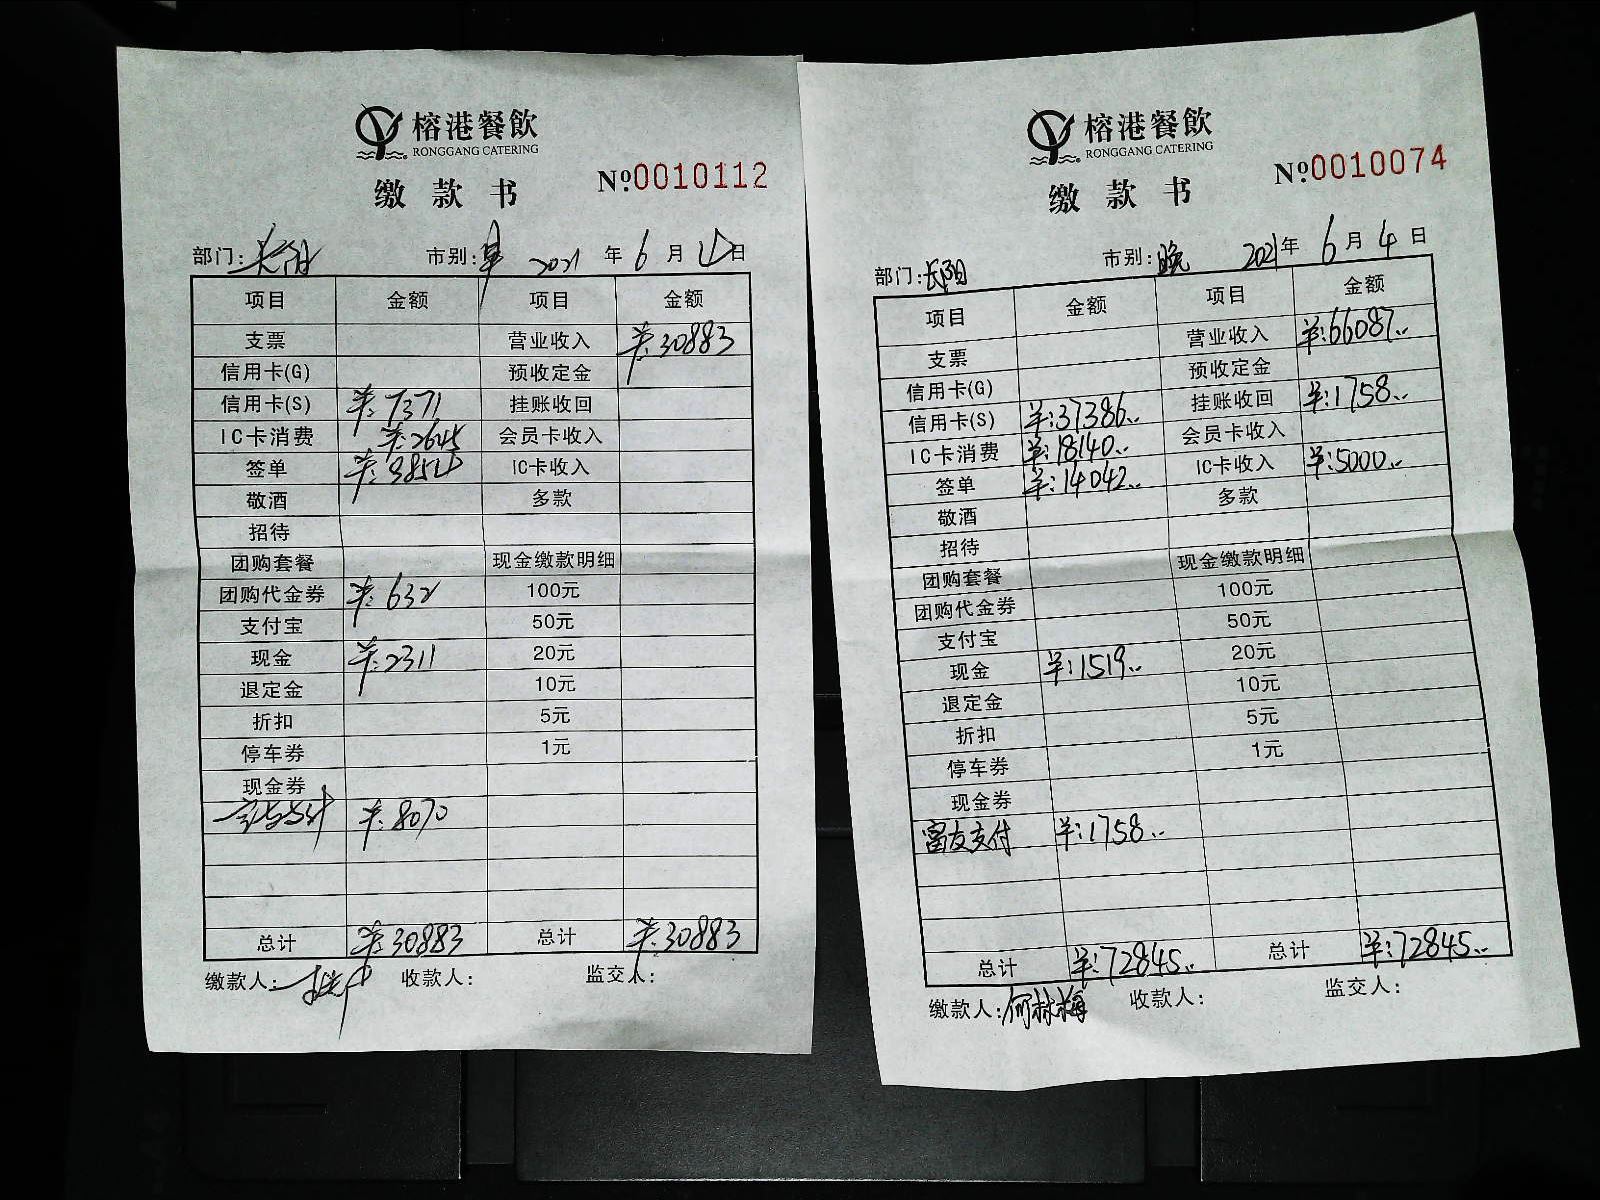 榕港餐飲
RONGGANG CATERING
缴款书 Nº:0010112
部门:长阳 市别:早 2021年6月4日
项目 金额 项目 金额
支票 营业收入 ¥:30883
信用卡(G) 预收定金
信用卡(S) ¥:7371 挂账收回
IC卡消费 ¥:2645 会员卡收入
签单 ¥:9854 IC卡收入
敬酒 多款
招待
团购套餐 现金缴款明细
团购代金券 ¥:632 100元
支付宝 50元
现金 ¥:2311 20元
退定金 10元
折扣 5元
停车券 1元
现金券
¥:8070
总计 ¥:30883 总计 ¥:30883
缴款人: 收款人: 监交人:
榕港餐飲
RONGGANG CATERING
缴款书 Nº:0010074
部门:长阳 市别:晚 2021年6月4日
项目 金额 项目 金额
支票 营业收入 ¥:66087..
信用卡(G) 预收定金
信用卡(S) ¥:37386.. 挂账收回 ¥:1758..
IC卡消费 ¥:18140.. 会员卡收入
签单 ¥:14042.. IC卡收入 ¥:5000..
敬酒 多款
招待
团购套餐 现金缴款明细
团购代金券 100元
支付宝 50元
现金 ¥:1519.. 20元
退定金 10元
折扣 5元
停车券 1元
现金券
富友支付 ¥:1758..
总计 ¥:72845.. 总计 ¥:72845..
缴款人:何林梅 收款人: 监交人: